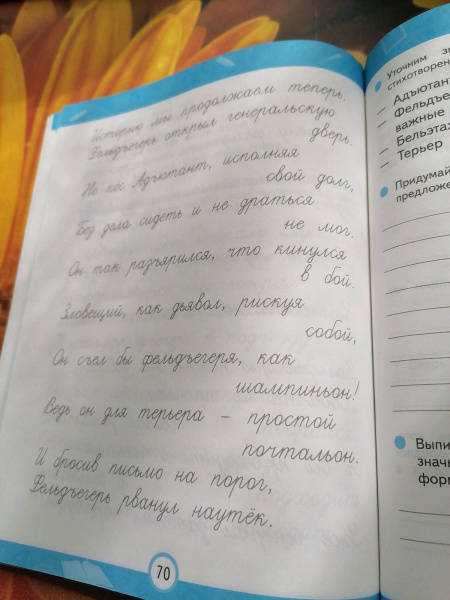 Историю мы продолжаем теперь.
Фельдъегерь открыл генеральскую
дверь.
Но пёс Адъютант, исполняя
свой долг,
Без дела сидеть и не драться
не мог.
Он так разъярился, что кинулся
в бой.
Зловещий, как дьявол, рискуя
собой,
Он съел бы фельдъегеря, как
шампиньон!
Ведь он для терьера – простой
почтальон.
И бросив письмо на порог,
Фельдъегерь рванул наутёк.
70
Уточним
стихотворен
– Адъютант
– Фельдъе
важные
– Бельэтаж
– Терьер
Придумай
предложе
Выпи
значь
фор